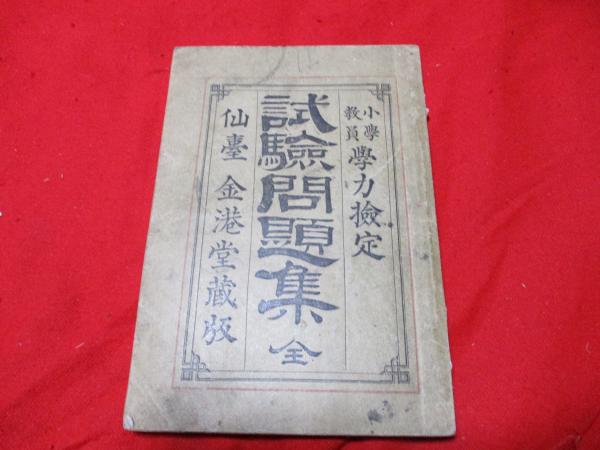 小學
教員
學力檢定
試驗問題集 全
仙臺 金港堂藏版